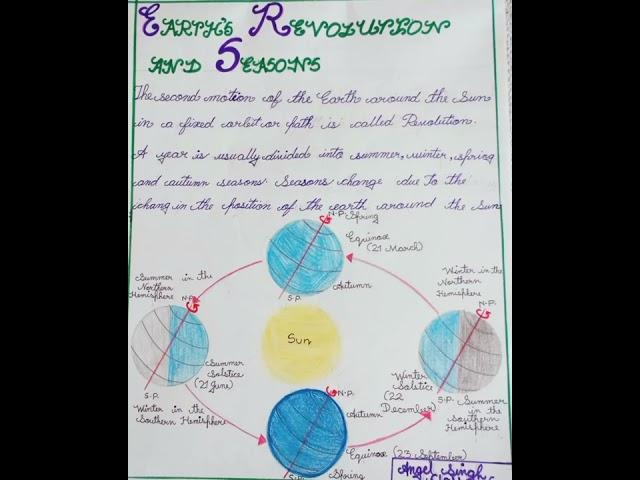 EARTH'S REVOLUTION
AND SEASONS
The second motion of the Earth around the Sun
in a fixed orbit or path is called Revolution.
A year is usually divided into summer, winter, spring
and autumn seasons. Seasons change due To the
chang in the position of the earth around the Sun
N.P.
Spring
Equinox
(21 March)
S.P.
Autumn
Summer in the
Northern
Hemisphere
N.P.
Summer
Solstice
(21 June)
S.P.
Winter in the
Southern Hemisphere
Sun
Winter in the
Northern
Hemisphere
N.P.
Winter
Solstice
(22
December)
S.P.
Summer
in the
Southern
Hemisphere
N.P.
Autumn
Equinox (23 September)
Spring
Angel Singh